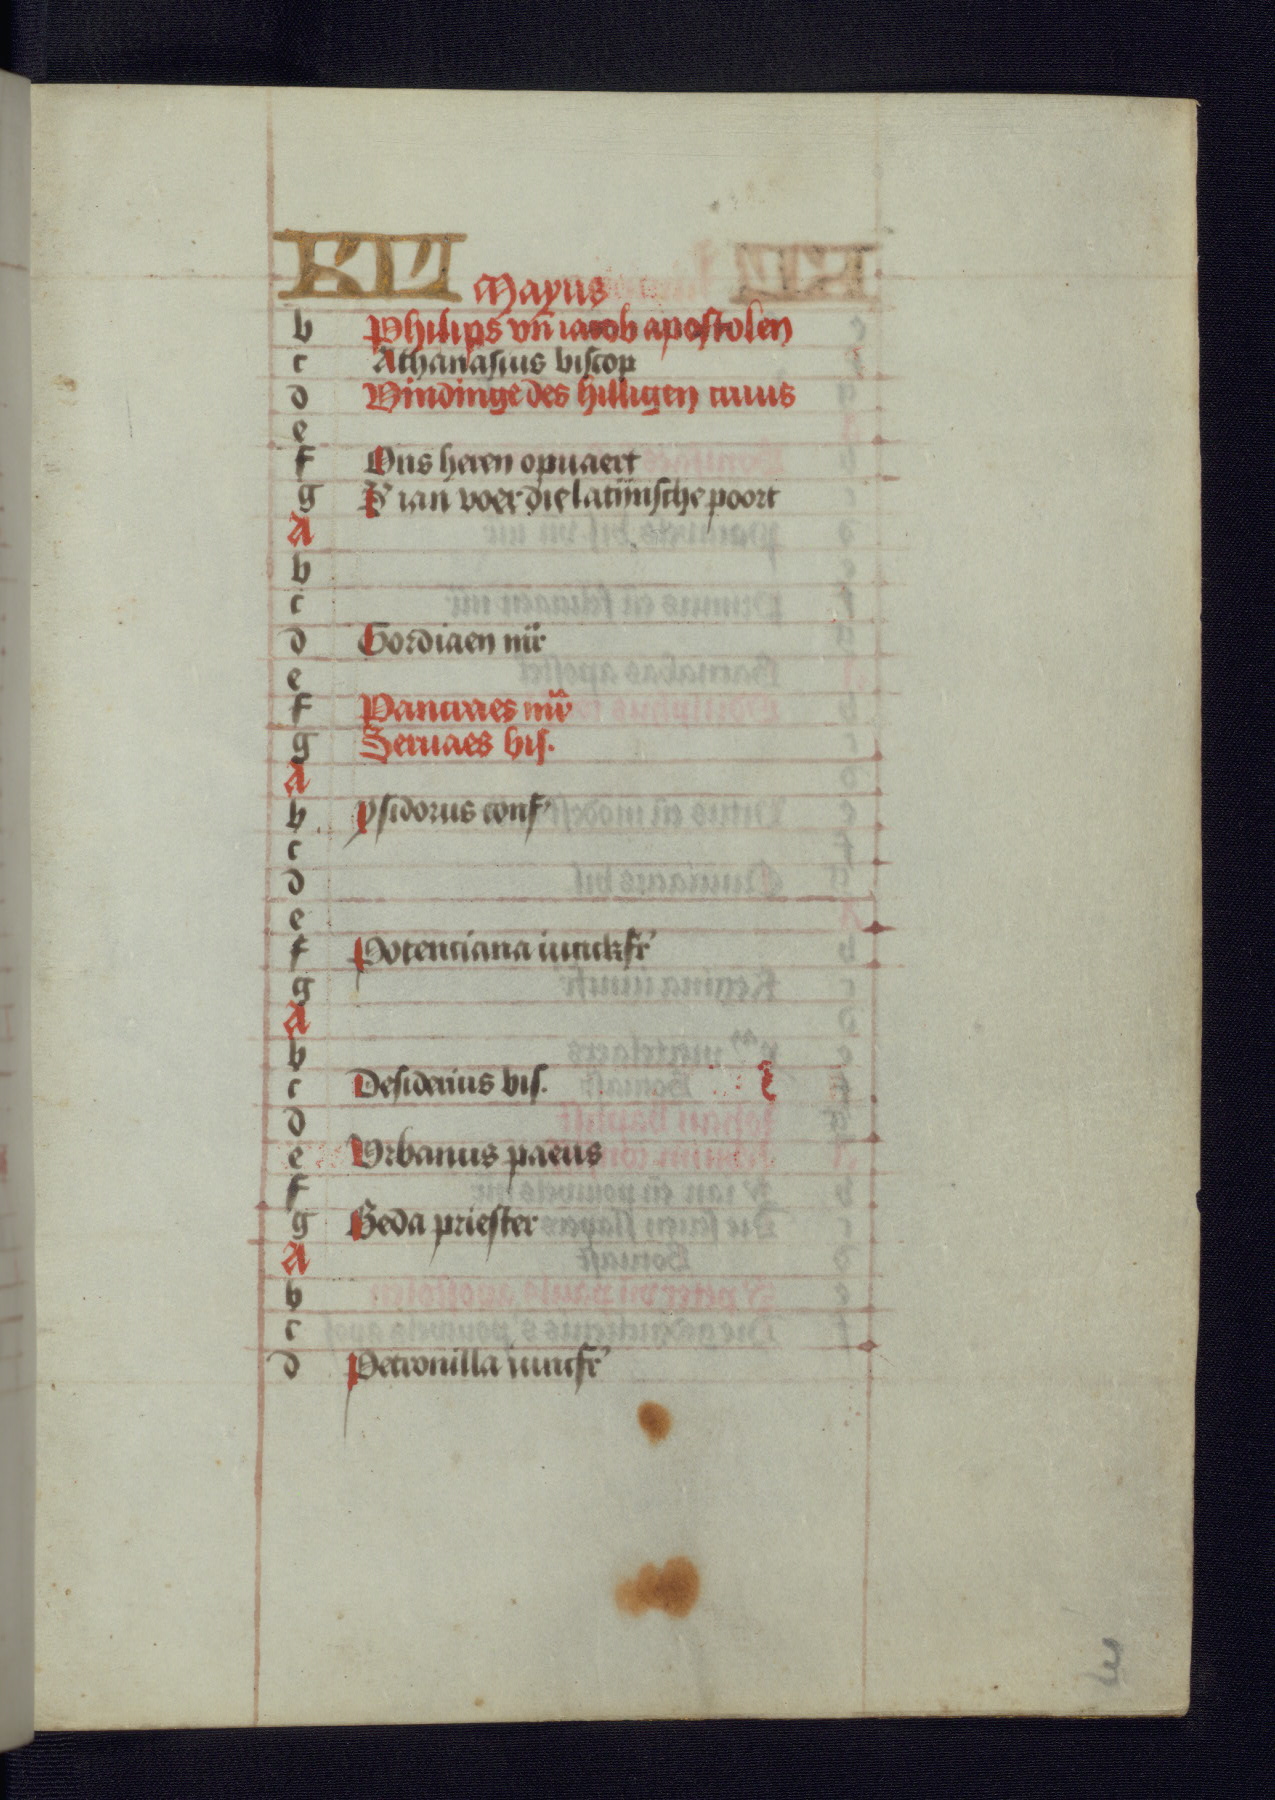 KL Mayus
b Philips vn̄ iacob apostolen
c Athanasius biscop
d Vindinge des hilligen cruus
e
f Ons heren opuaert
g S' ian voer die latijnsche poort
A
b
c
d Gordiaen mr̄
e
f Pancraes mr̄
g Seruaes bis.
A
b ysidorus conf'
c
d
e
f Potenciana iunckfr'
g
A
b
c Desiderius bis.
d
e Vrbanus paeus
f
g Beda priester
A
b
c
d Petronilla iuncfr'